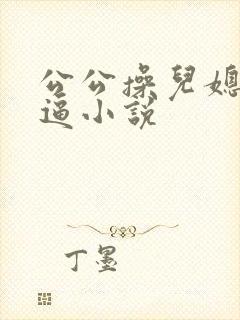 公公操兒媳
逼小說
丁墨